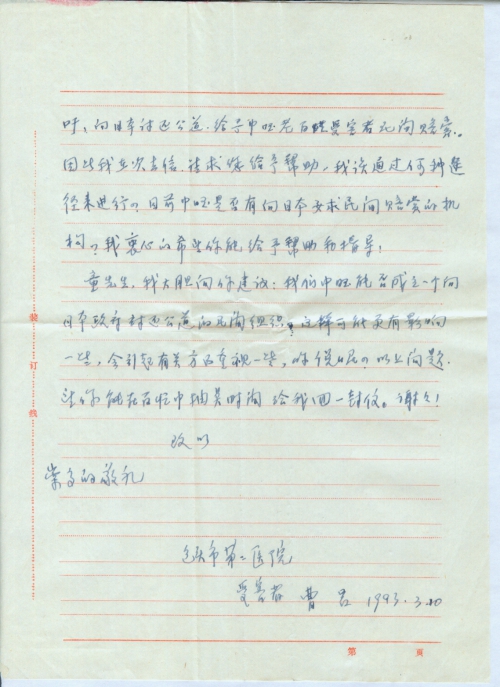 吁，向日本讨还公道，给予中国老百姓受害者民间赔索。
因此我再次去信，请求您给予帮助，我该通过何种途
径来进行？目前中国是否有向日本要求民间赔赏的机
构？我衷心的希望你能给予帮助和指导！
童先生，我大胆向你建议：我们中国能否成立一个向
日本政府讨还公道的民间组织，这样可能更有影响
一些，会引起有关方面重视一些，你说呢？以上问题，
望你能在百忙中抽点时间给我回一封信。谢谢！
致以
崇高的敬礼
包头市第二医院
受害者 曹 1993.3.20
装
订
线
第 页